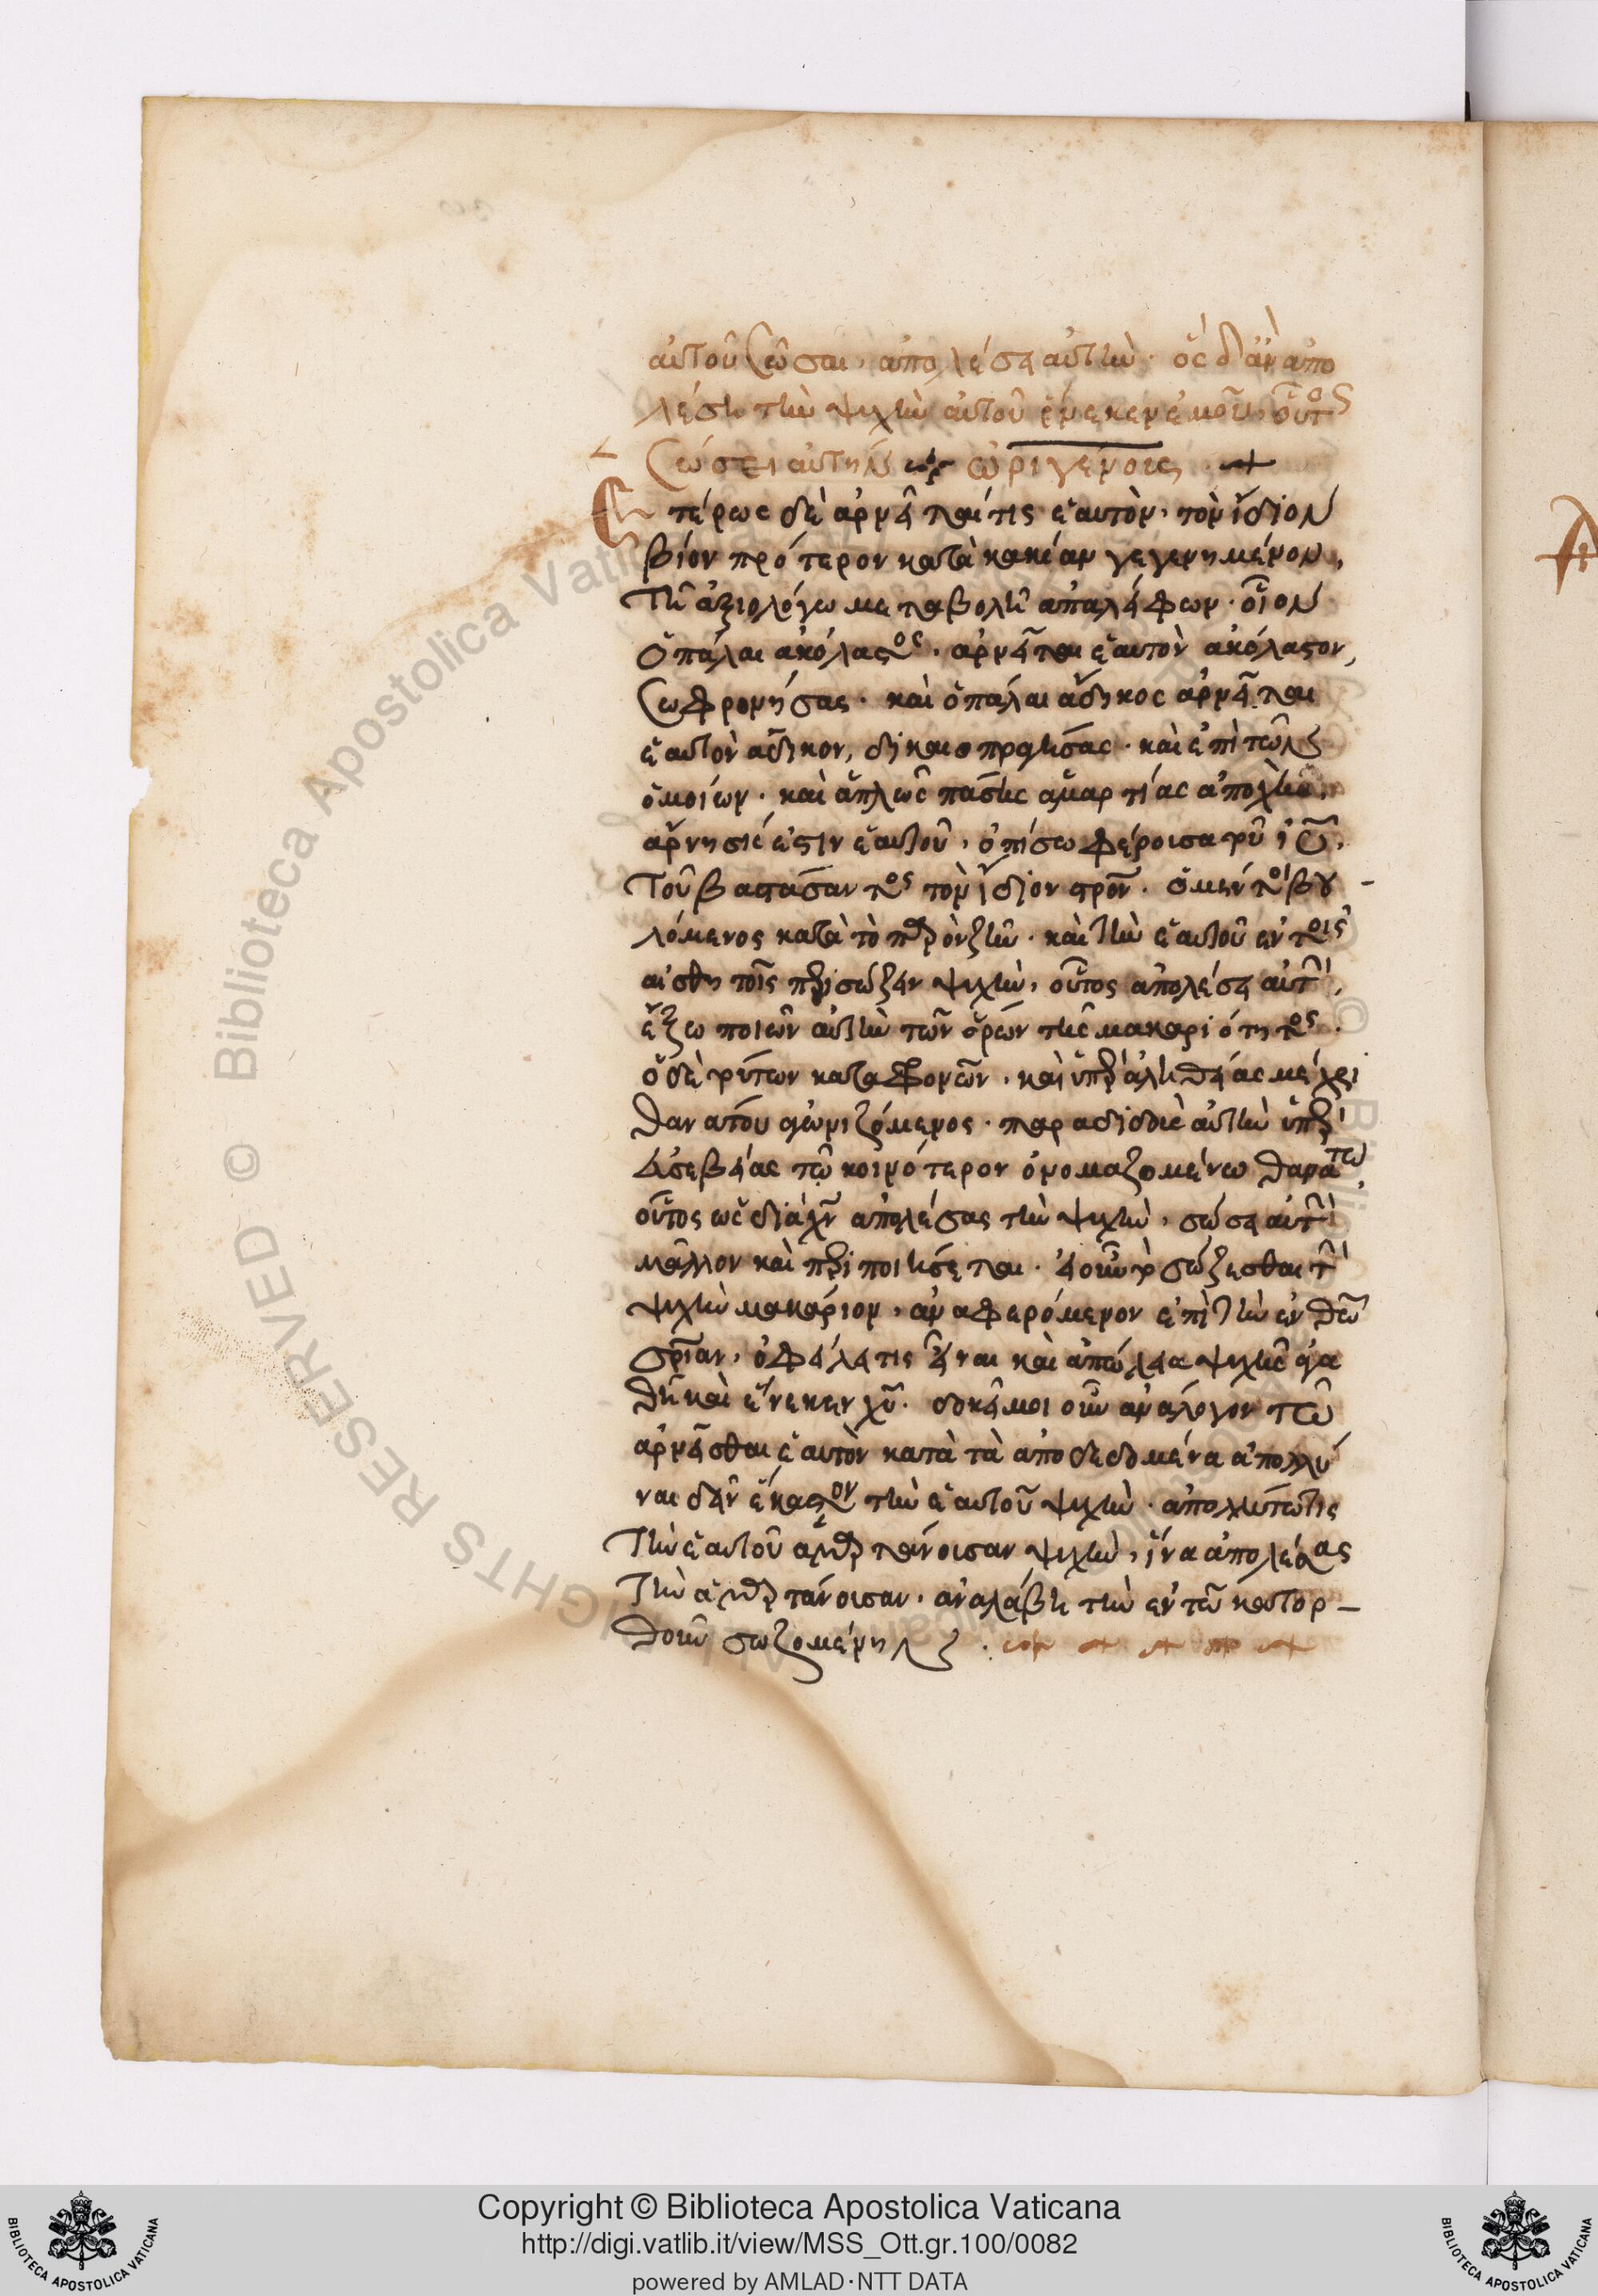 αὐτοῦ σῶσαι, ἀπολέσει αὐτὴν· ὃς δ' ἂν ἀπο
λέσῃ τὴν ψυχὴν αὐτοῦ ἕνεκεν ἐμοῦ, οὗτος
σώσει αὐτήν ὠριγένους
Ἑτέρως δὲ ἀρνεῖται τις ἑαυτὸν, τὸν ἴδιον
βίον πρότερον κατὰ κακίαν γεγενημένον,
τῇ ἀξιολόγω μεταβολῇ ἀπαλείφων· οἷον
ὁ πάλαι ἀκόλαστος, ἀρνεῖται ἑαυτὸν ἀκόλαστον,
σωφρονήσας· καὶ ὁ πάλαι ἄδικος ἀρνεῖται
ἑαυτὸν ἄδικον, δικαιοπραγήσας· καὶ ἐπὶ τῶν
ὁμοίων· καὶ ἁπλῶς πάσης ἁμαρτίας ἀποχὴ,
ἄρνησίς ἐστιν ἑαυτοῦ, ὀπίσω φέρουσα τοῦ ἰυ,
τοῦ βαστάσαντος τὸν ἴδιον στρον· ὁ μέντοι βου-
λόμενος κατὰ τὸ παρὸν ζῆν· καὶ τὴν ἑαυτοῦ ἐν τοῖς
αἰσθητοῖς περισώζειν ψυχὴν, οὗτος ἀπολέσει αὐτὴν,
ἔξω ποιῶν αὐτὴν τῶν ὅρων τῆς μακαριότητος.
ὁ δὲ τούτων καταφρονῶν, καὶ ὑπὲρ ἀληθείας μέχρι
θανάτου ἀγωνιζόμενος· παραδιδοὺς αὐτὴν ὑπὲρ
εὐσεβείας τῷ κοινότερον ὀνομαζομένω θανάτω,
οὗτος ὡς διὰ χν ἀπολέσας τὴν ψυχὴν, σώσει αὐτὴν
μᾶλλον καὶ περιποιήσεται· εἰ οὖν τὸ σώζεσθαι τὴν
ψυχὴν μακάριον, ἀναφερόμενον ἐπὶ τὴν ἐν θεῷ
σρίαν, ὀφείλει τις εἶναι καὶ ἀπώλεια ψυχῆς ἀγα
θὴ καὶ ἕνεκεν χυ. δοκεῖ μοι οὖν ἀνάλογον τῷ
ἀρνεῖσθαι ἑαυτὸν κατὰ τὰ ἀποδεδομένα ἀπολλύ
ναι δεῖν ἕκαστον τὴν ἑαυτοῦ ψυχὴν· ἀπολλύτω τις
τὴν ἑαυτοῦ ἁμαρτάνουσαν ψυχὴν, ἵνα ἀπολέσας
τὴν ἁμαρτάνουσαν, ἀναλάβῃ τὴν ἐν τῷ κατορ-
θοῦν σωζομένην
Copyright © Biblioteca Apostolica Vaticana
http://digi.vatlib.it/view/MSS_Ott.gr.100/0082
powered by AMLAD·NTT DATA
BIBLIOTECA APOSTOLICA VATICANA
BIBLIOTECA APOSTOLICA VATICANA